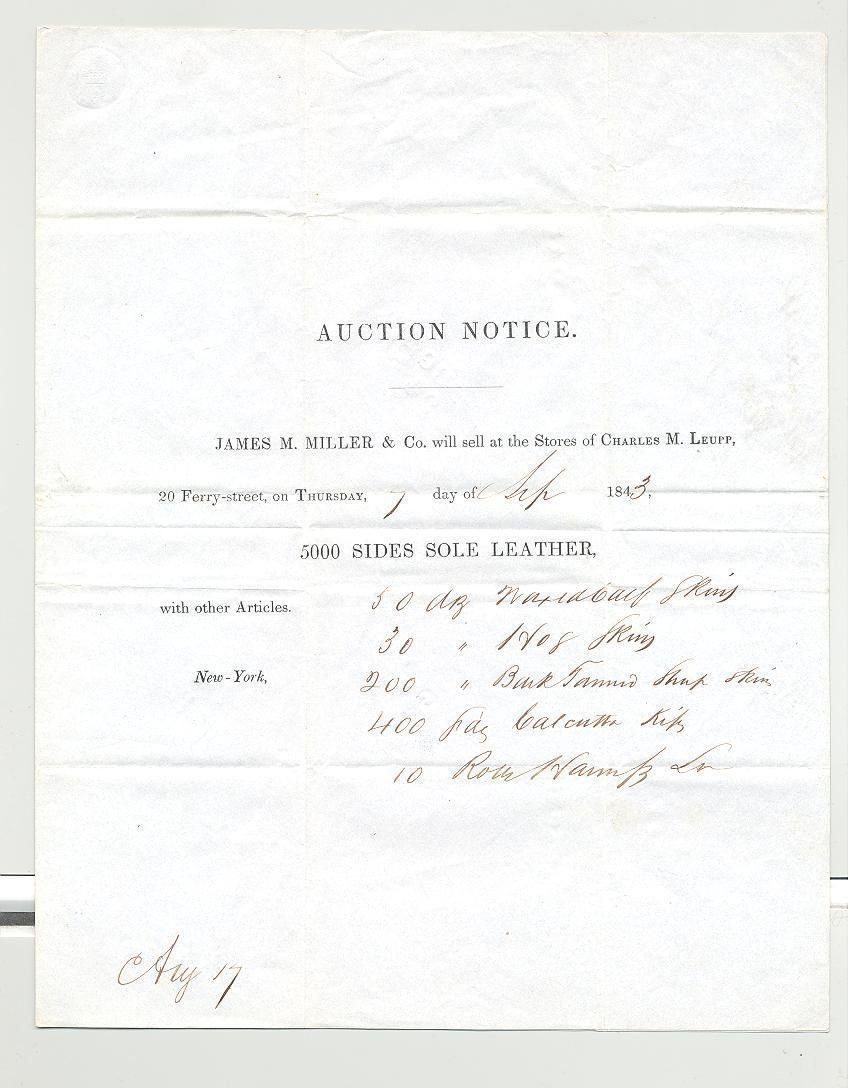 AUCTION NOTICE.
JAMES M. MILLER & Co. will sell at the Stores of CHARLES M. LEUPP,
20 Ferry-street, on THURSDAY, 7 day of Sep 1843,
5000 SIDES SOLE LEATHER,
with other Articles. 50 dz Waxed Calf Skins
30 " Hog Skins
New-York, 200 " Bark Tanned Sheep Skins
400 Calcutta Kips
10 Rolls Harness
Aug 17